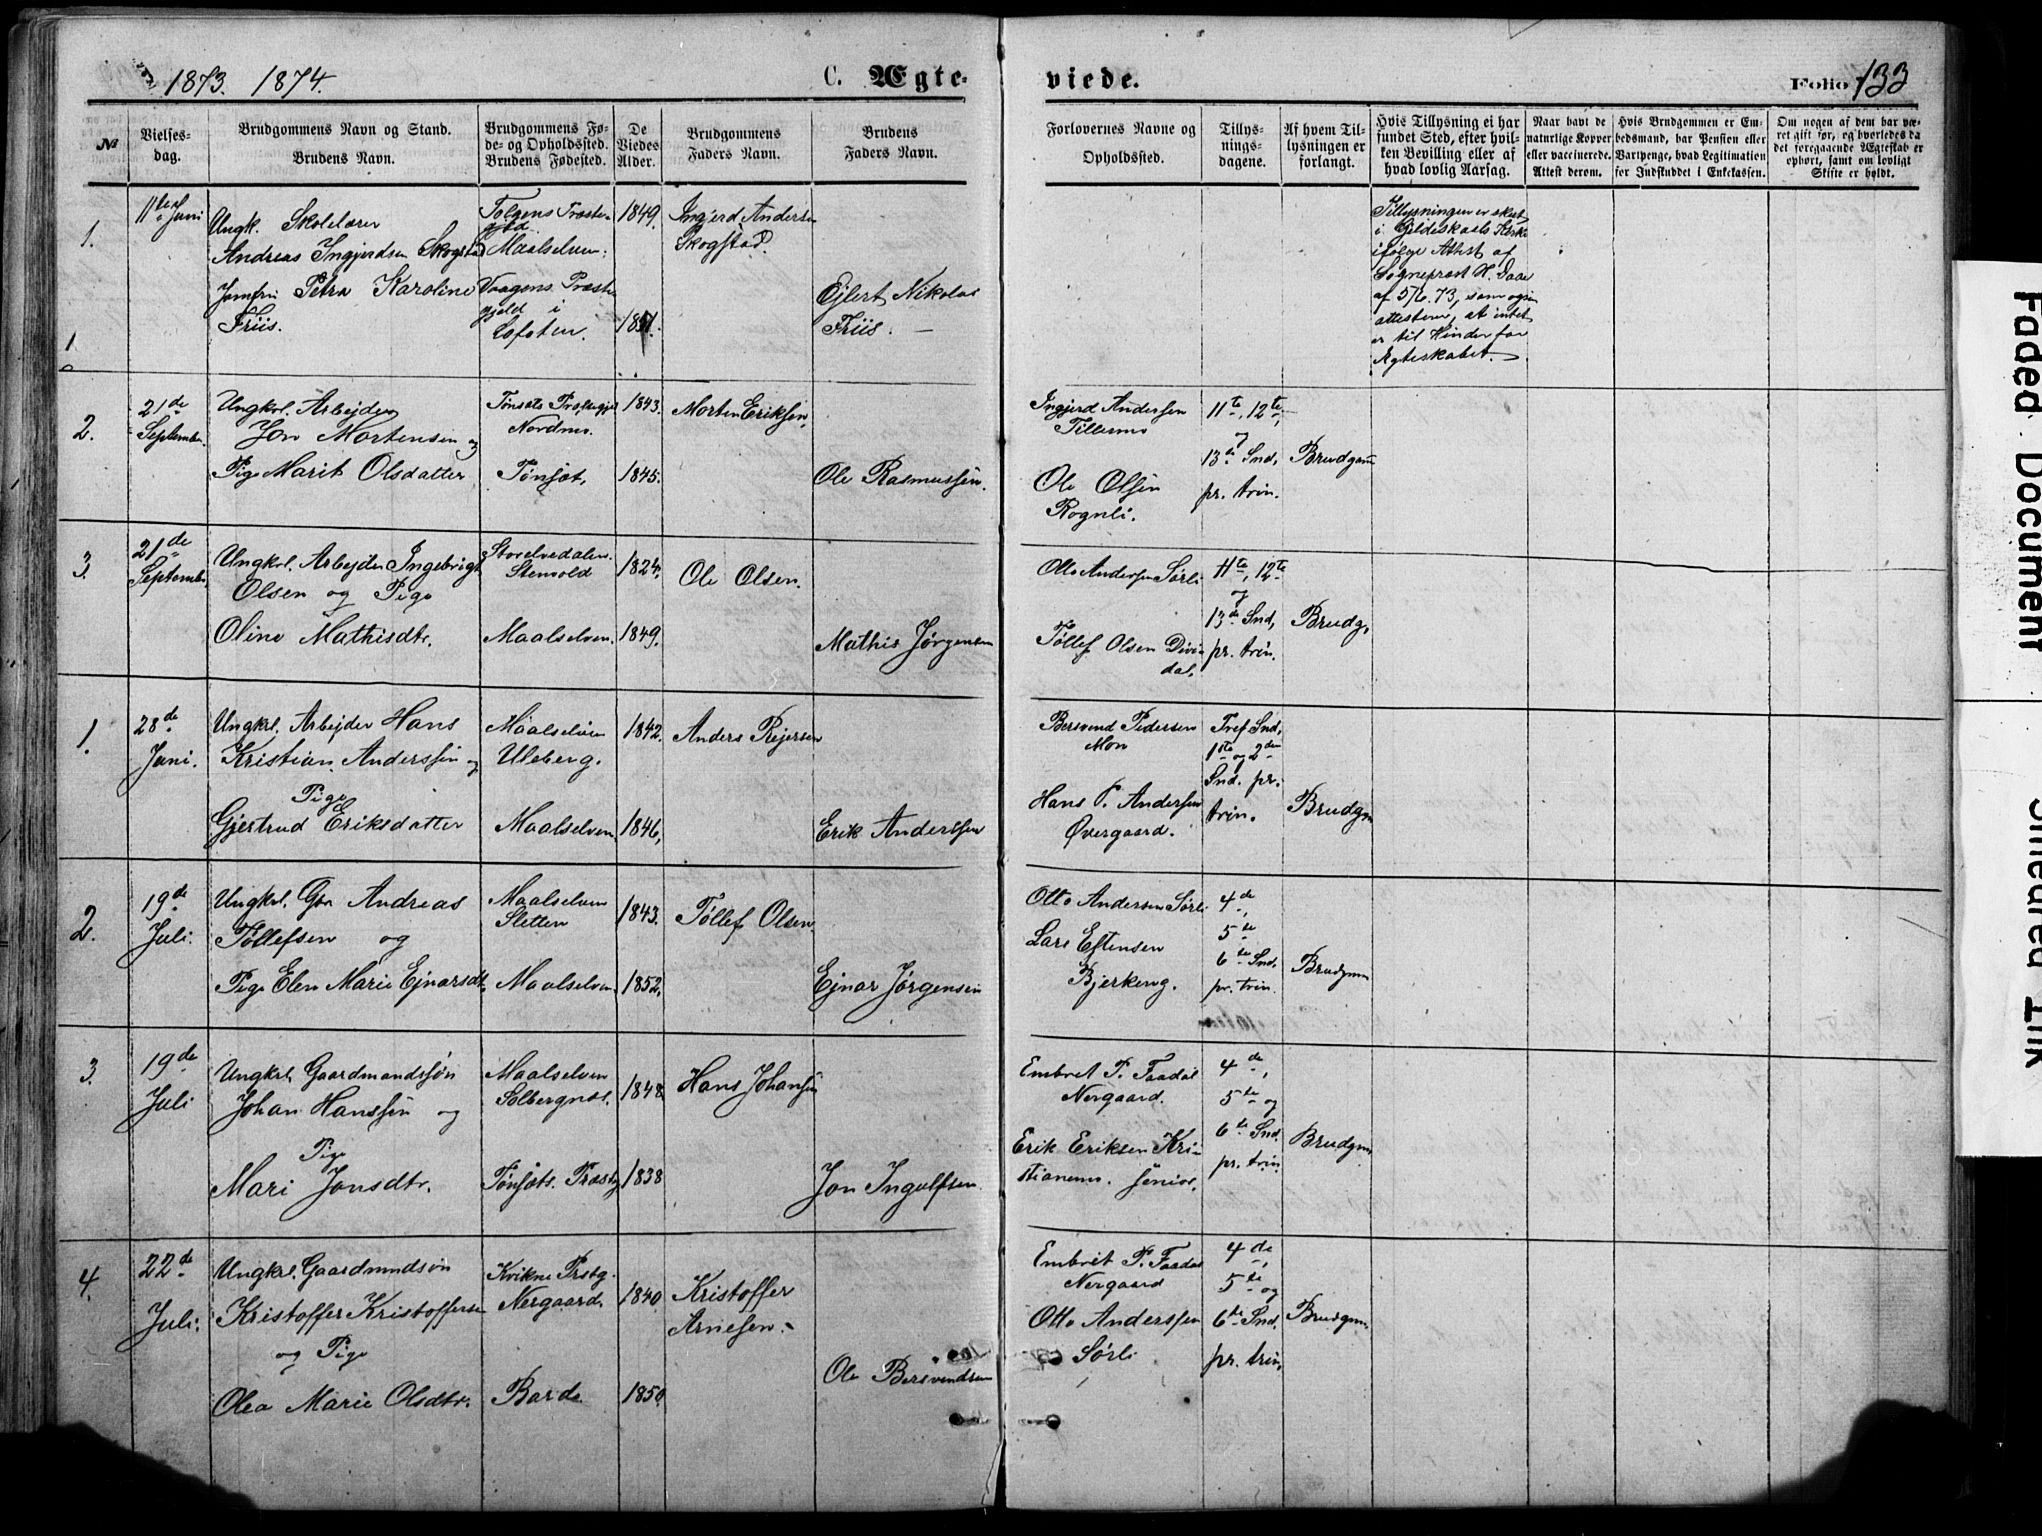 1873. 1874.
C. Ægte-
viede.
Folio 133
№
Vielses-
dag.
Brudgommens Navn og Stand.
Brudens Navn.
Brudgommens Fø-
de- og Opholdssted.
Brudens Fødested.
De
Viedes
Alder.
Brudgommens
Faders Navn.
Brudens
Faders Navn.
Forlovernes Navne og
Opholdssted.
Tillys-
nings-
dagene.
Af hvem Til-
lysningen er
forlangt.
Hvis Tillysning ei har
fundet Sted, efter hvil-
ken Bevilling eller af
hvad lovlig Aarsag.
Naar havt de
naturlige Kopper
eller vaccinerede.
Attest derom.
Hvis Brudgommen er Em-
bedsmand, har Pension eller
Vartpenge, hvad Legitimation
for Indskuddet i Enkekassen.
Om nogen af dem har væ-
ret gift før, og hvorledes da
det foregaaende Ægteskab er
ophørt, samt om lovligt
Skifte er holdt.
1.
11te Juni
Ungk. Skolelærer
Andreas Ingjerdsen Skogstad
Jomfru Petra Karoline
Friis.
Tolgens Præste-
gjld.
Maalselven.
Vaagens Præste
gjeld i
Lofoten.
1849.
1851.
Ingjerd Andersen
Skogstad
Ejlert Nikolai
Friis. —
Tillysningen er skeet
i Gildeskaals Kirke
ifølge Attest af
Sogneprest H. Daae
af 5/6. 73, som ogsaa
attesterer, at intet
er til Hinder for
Ægteskabet.
1
2.
21de
September.
Ungkrl. Arbejder
Jon Mortensen og
Pige Marit Olsdatter
Tønsets Præstegjel
Nordmo.
Tønset,
1843.
1845.
Morten Eriksen,
Ole Rasmussen.
Ingjerd Andersen
Tillermo
Ole Olsen
Rognli.
11te, 12te,
og
13de Snd,
pr. trin.
Brudgom
3.
21de
September
Ungkrl. Arbejder Ingebrigt
Olsen og Pige
Oline Mathisdtr.
Storelvedalen.
Stenvold
Maalselven.
1824,
1849.
Ole Olsen.
Mathis Jørgensen
Otto Andersen Sørli
Tøllef Olsen Divi-
dal.
11te, 12te
og
13de Snd,
pr. trin.
Brudg,
1.
28de
Juni.
Ungkrl. Arbejder Hans
Kristian Anderssøn og
Pige
Gjertrud Eriksdatter
Maalselven
Uleberg.
Maalselven
1842.
1846,
Anders Rejersen
Erik Anderssen
Bersvend Pedersen
Mon
Hans P. Andersen
Øvergaard.
Tref Snd,
1ste og 2den
Snd. pr.
trin.
Brudgm
2.
19de
Juli.
Ungkrl. Gbr Andreas
Tøllefsen og
Pige Elen Marie Ejnarsdt.
Maalselven
Sletten
Maalselven
1843.
1852,
Tøllef Olsen
Ejnar Jørgensen
Otto Andersen Sørli
Lars Estensen
Bjerkeng.
4de,
5te
6te Snd.
pr. trin.
Brudgm
3.
19de
Juli
Ungkrl. Gaardmandssøn
Johan Hanssen og
Pige
Mari Jonsdtr.
Maalselven
Solbergnæs.
Tønsets. Præstg
1848
1838
Hans Johansen
Jon Ingulfsen
Embret P. Faadal
Nergaard.
Erik Eriksen Kri-
stianenes. senior.
4de,
5te og
6te Snd.
pr. trin
Brudgm
4.
22de
Juli.
Ungkrl. Gaardmandsøn
Kristoffer Kristoffersen
og Pige
Olea Marie Olsdtr.
Kvikne Prstg.
Nergaard.
Bardo
1840
1850
Kristoffer
Arnesen.
Ole Bersvendsen
Embret P. Faadal
Nergaard
Otto Anderssen
Sørli
4de,
5te og
6te Snd.
pr. trin,
Brudgm.
Faded Document
Smeared Ink